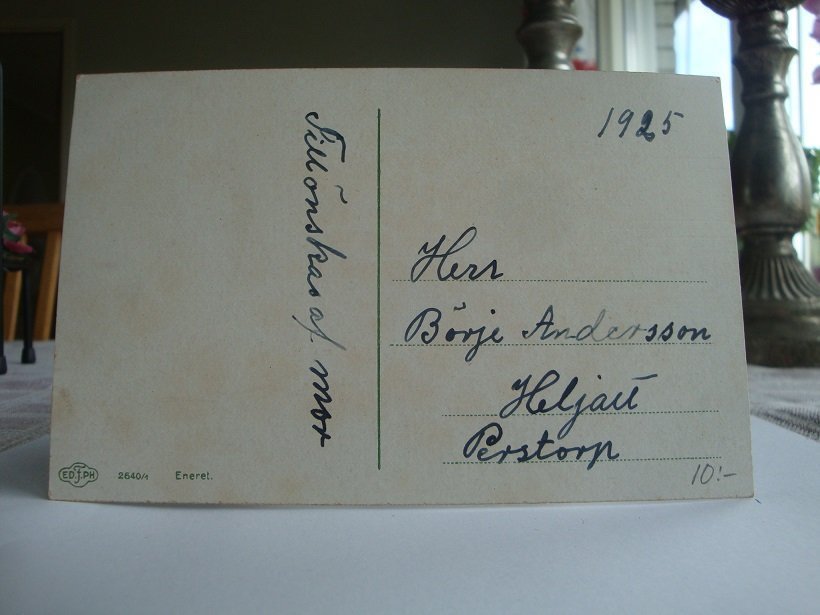 Tillönskas af mor
1925
Herr
Börje Andersson
Heljalt
Perstorp
10:-
ED.F.PH
2640/1 Eneret.